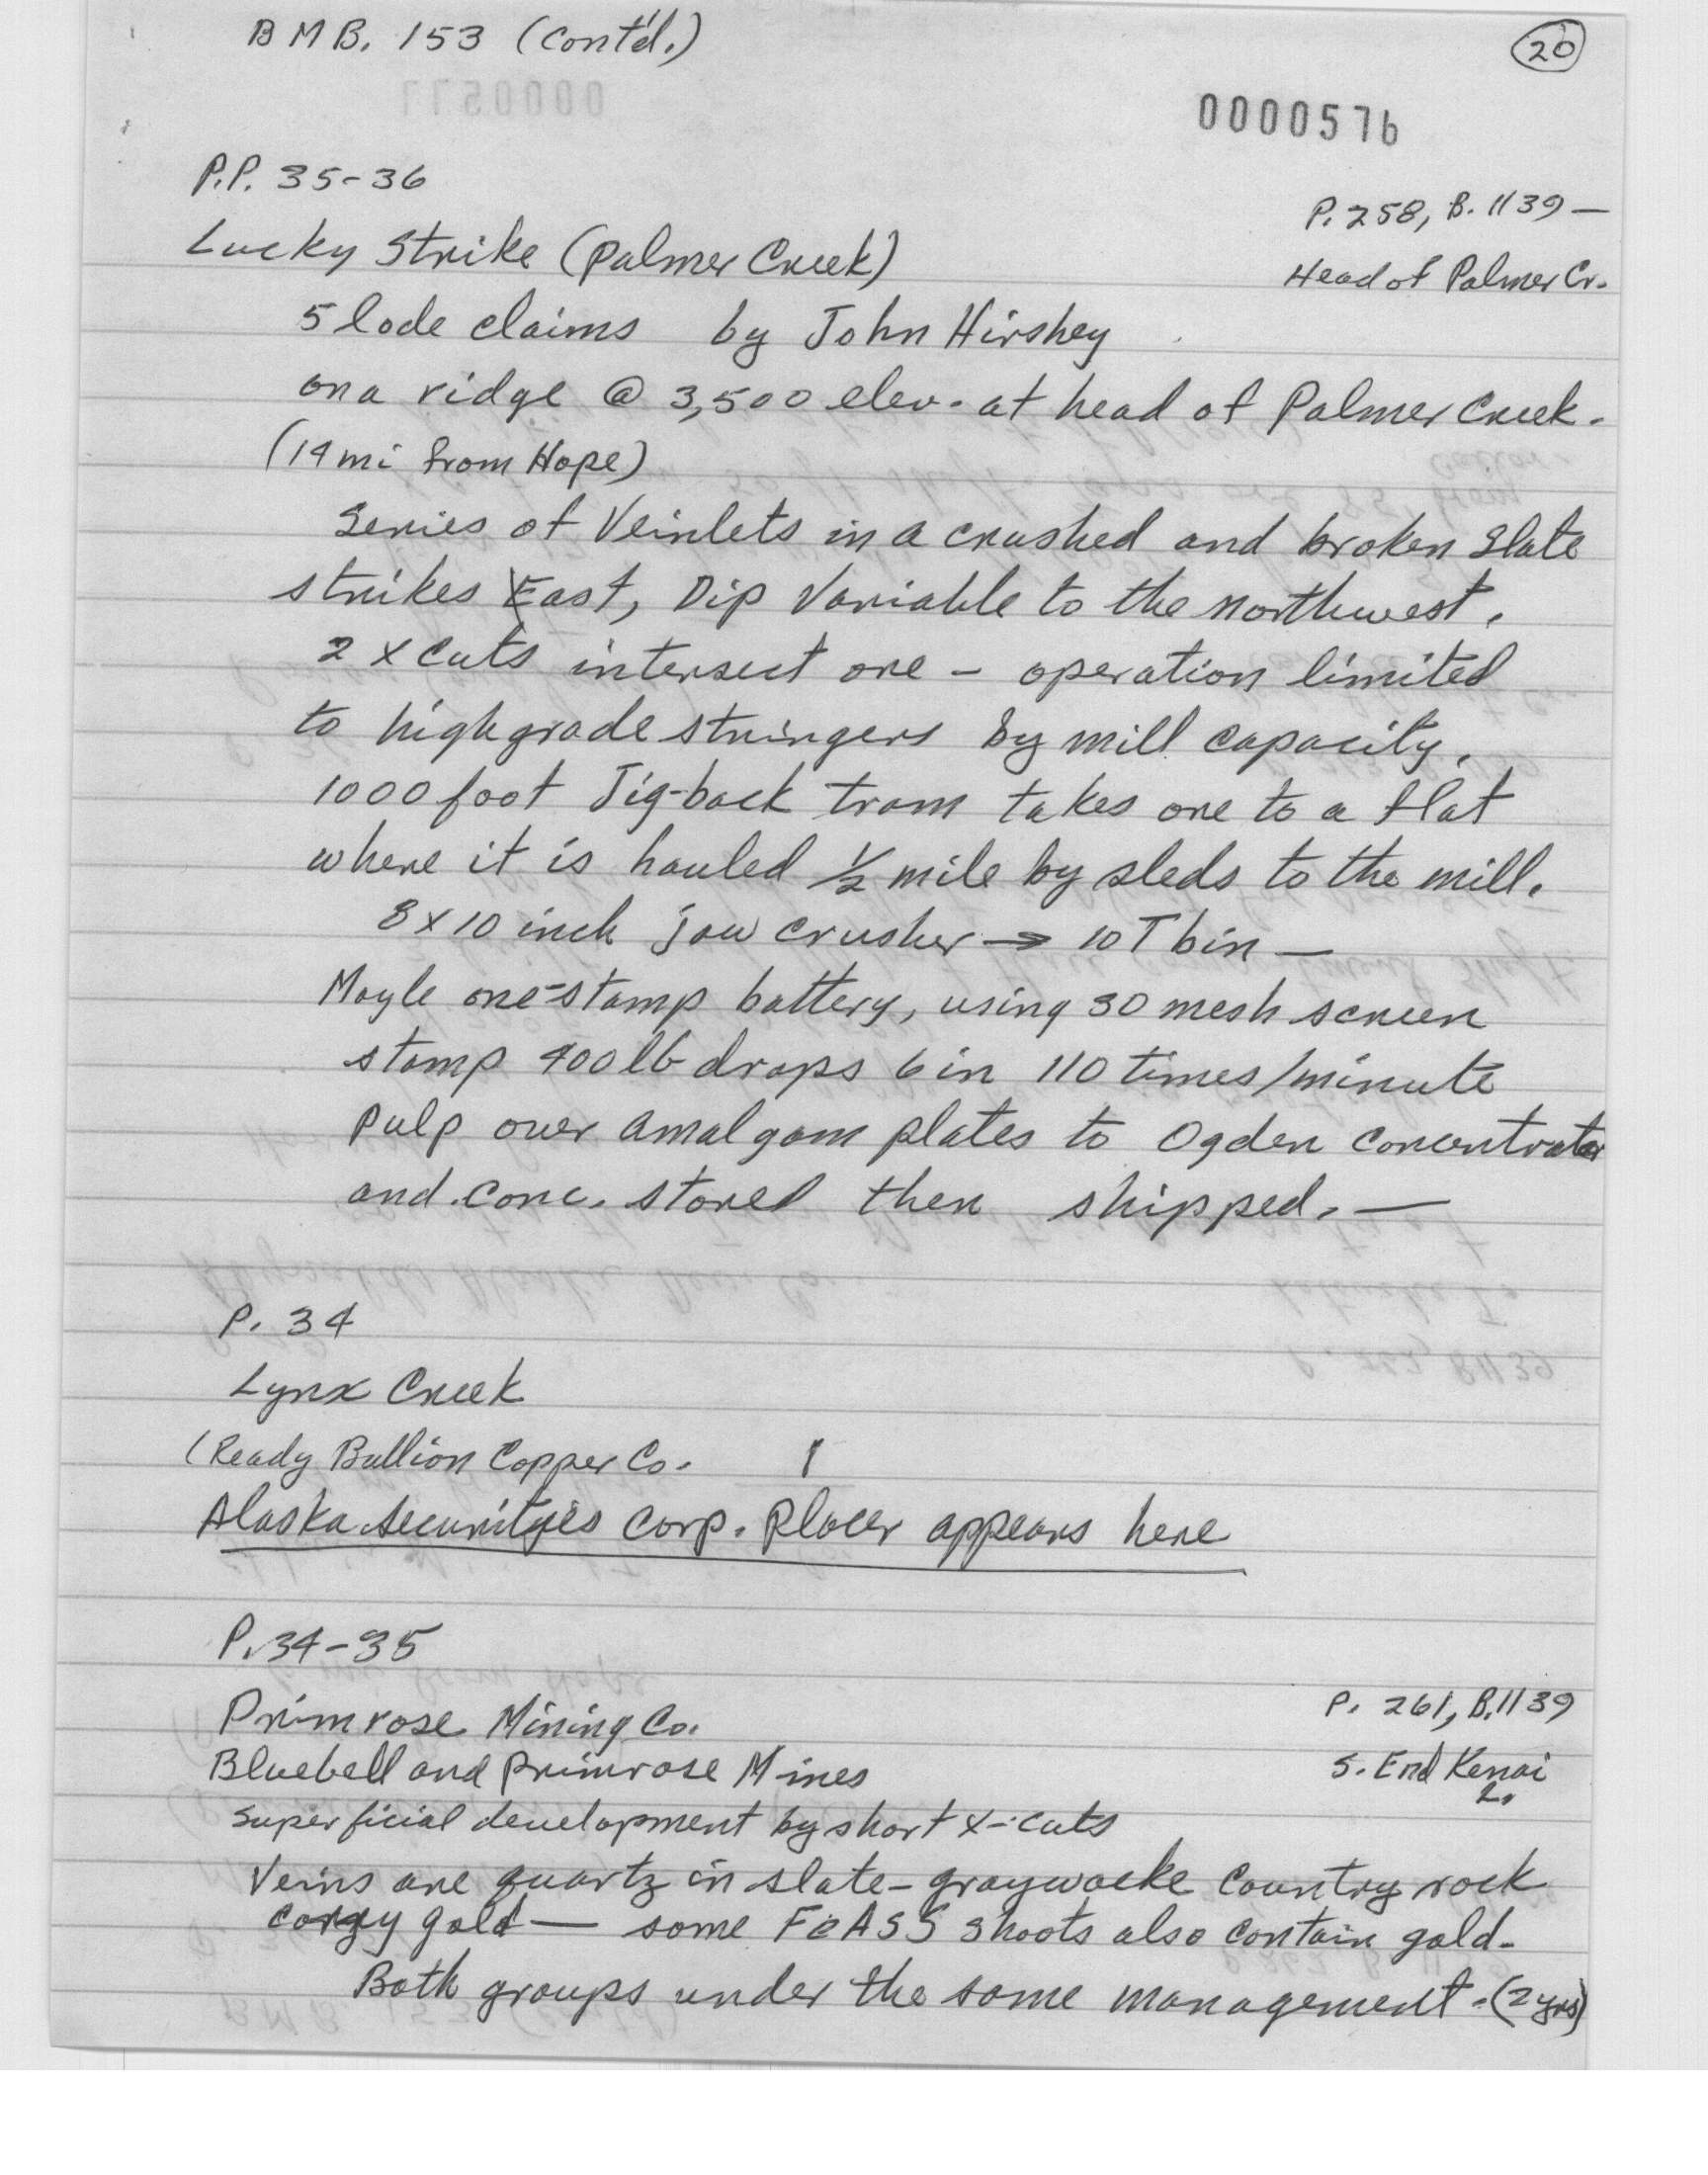 BMB. 153 (Cont'd.)
20
0000576
P.P. 35-36
P. 258, B. 1139 —
Lucky Strike (Palmer Creek)
Head of Palmer Cr.
5 lode claims by John Hirshey
on a ridge @ 3,500 elev. at head of Palmer Creek.
(14 mi from Hope)
Series of Veinlets in a crushed and broken slate
strikes East, Dip Variable to the northwest.
2 x cuts intersect ore - operation limited
to highgrade stringers by mill capacity.
1000 foot Jig-back tram takes ore to a flat
where it is hauled 1/2 mile by sleds to the mill.
8 x 10 inch jaw crusher → 10 T bin —
Moyle one-stamp battery, using 30 mesh screen
stamp 400 lb drops 6 in 110 times/minute
pulp over amalgam plates to Ogden concentrator
and conc. stored then shipped. —
P. 34
Lynx Creek
(Ready Bullion Copper Co.
Alaska Securities Corp. Placer appears here
P. 34-35
Primrose Mining Co.
P. 261, B. 1139
Bluebell and Primrose Mines
S. End Kenai
L.
Superficial development by short x-cuts
Veins are quartz in slate-graywacke Country rock
carry gold — some FeAsS shoots also contain gold.
Both groups under the same management. (2 yrs)